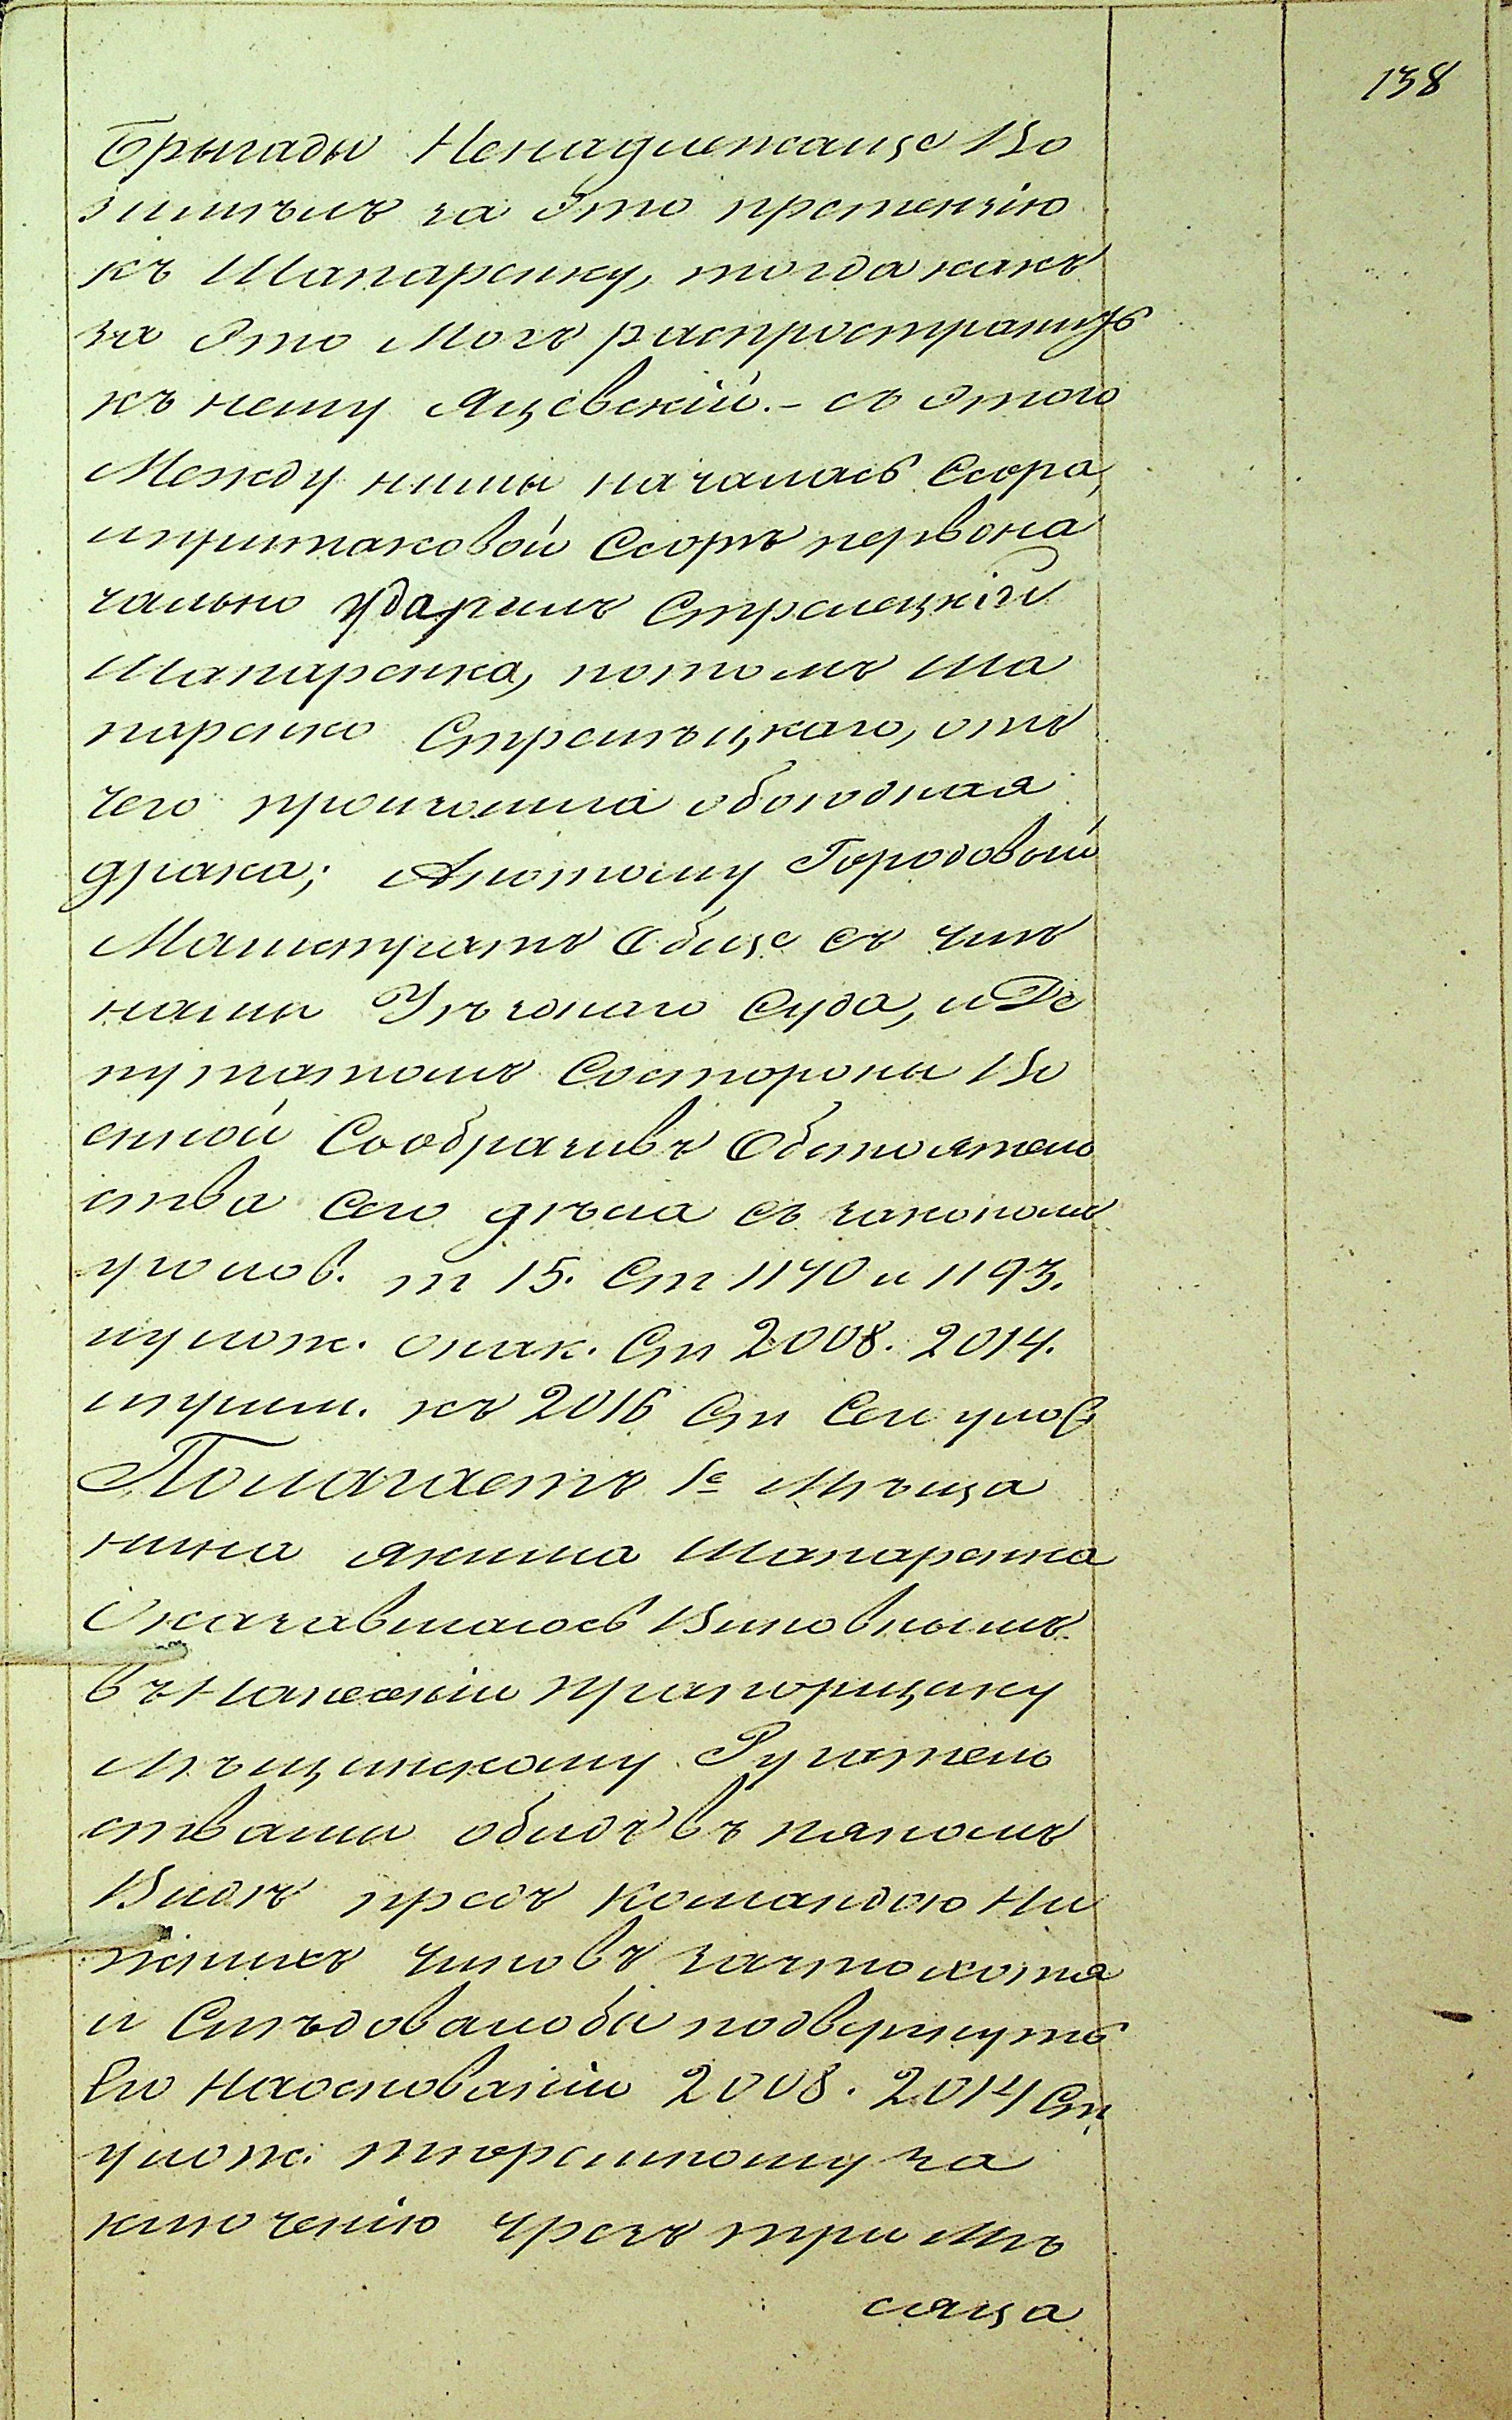 138
Брыгады Ненадлежаще Во
зимѣлъ за Это претензію
къ Шапаренку, тогда какъ
за Это Могъ распространить
къ нему Яцевскій. - съ этого
Между ними началась Ссора,
ипритаковой Ссорѣ первона
чально ударилъ Стрелецкій
Шапаренка, потомъ Ша
паренко Стрелѣцкаго, отъ
чего произошла обоюдная
драка; Апотому Городовый
Магистратъ Обще съ чле
нами Уѣзднаго Суда, и Де
путатомъ Состороны Во
енной Сообразивъ Обстоятель
ства Сего дѣла съ закономъ
уголов. т 15. Ст 1140 и 1193.
иулож. онак. Ст 2008. 2014.
иприм. къ 2016 Ст Сегоулож
Полагаетъ 1е Мѣща
нина Якима Шапаренка
Оказавшагось Виновнымъ
въ Нанесеніи прапорщику
Мѣщинскому Ругатель
ствами обидъ въ пяномъ
Видѣ предъ Командою Ни
жнихъ чиновъ зачто хотя
и Слѣдовалобы подвергнуть
Его Наоснованіи 2008. 2014 Ст
улож. тюремному за
ключенію чрезъ три Мѣ
сяца